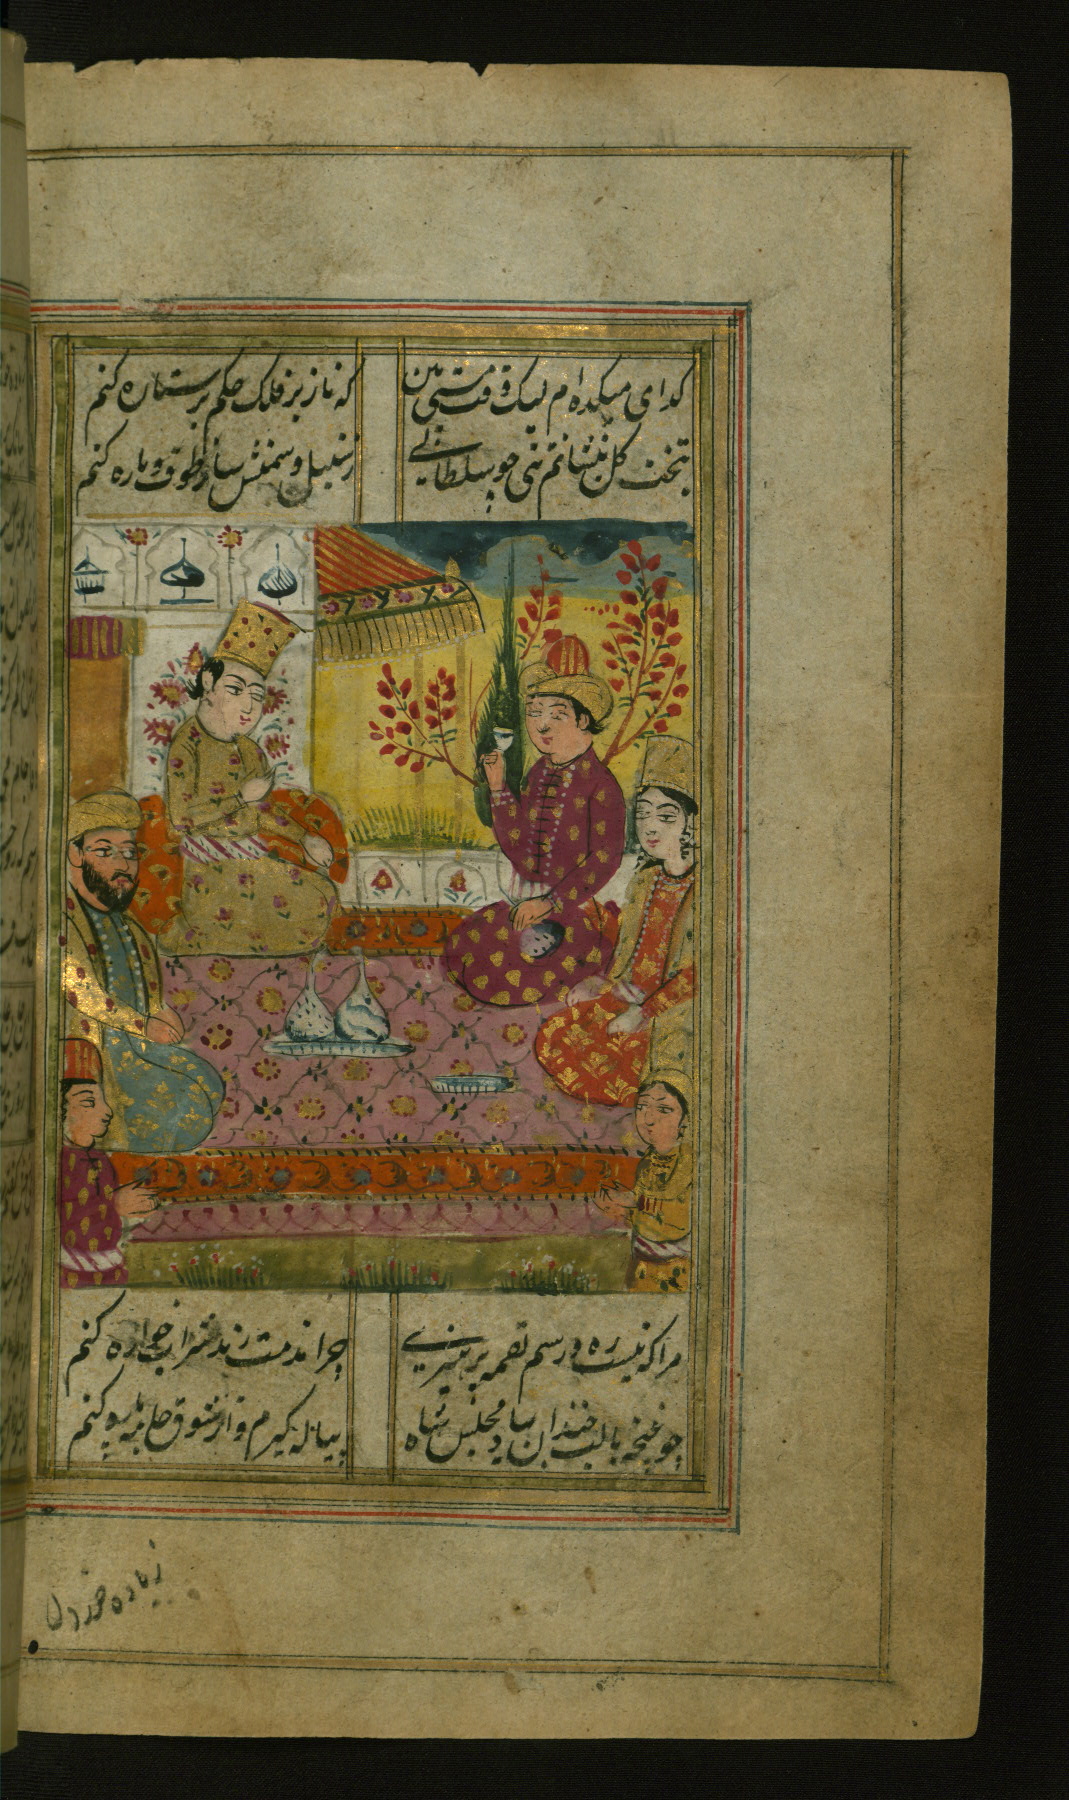 کدای میکده ام لیک وقت مستی بین
که ناز بر فلک و حکم بر ستاره کنم
بتخت کل بنشانم بتی چو سلطانی
ز سنبل و سمنش ساز طوق و یاره کنم
مرا که نیست ره و رسم لقمه پرهیزی
چرا مذمت رند شرابخواره کنم
چو غنچه با لب خندان بیاد مجلس شاه
پیاله کیرم و از شوق جامه پاره کنم
ز باده خوردن